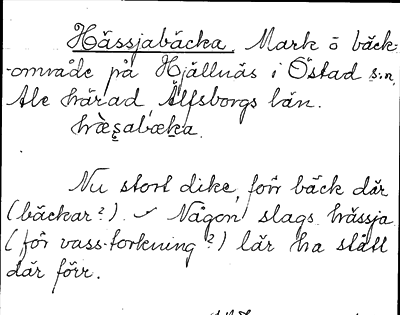 Hässjabäcka. Mark o bäck-
område på Hjällnäs i Östad s:n,
Ale härad, Älfsborgs län.
Nu stort dike, förr bäck där
(bäckar?). – Någon slags hässja
(för vass-torkning?) lär ha stått
där förr.